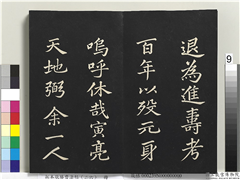 退為進壽考
百年以歿元身
嗚呼休哉寅亮
天地弼余一人
9